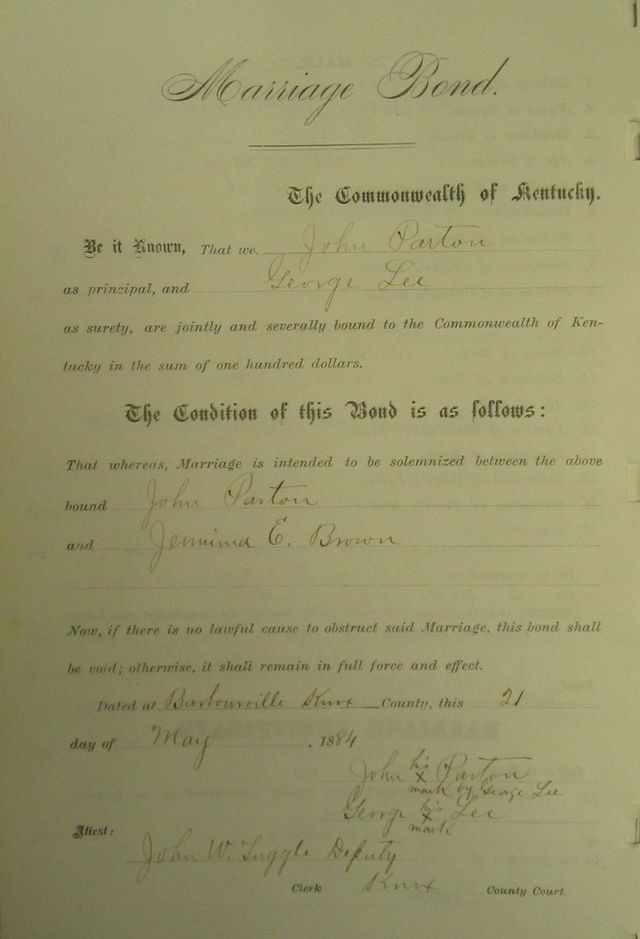 Marriage Bond.
The Commonwealth of Kentucky.
Be it Known, That we John Parton
as principal, and George Lee
as surety, are jointly and severally bound to the Commonwealth of Ken-
tucky in the sum of one hundred dollars.
The Condition of this Bond is as follows:
That whereas, Marriage is intended to be solemnized between the above
bound John Parton
and Jemima E. Brown
Now, if there is no lawful cause to obstruct said Marriage, this bond shall
be void; otherwise, it shall remain in full force and effect.
Dated at Barbourville Knox County, this 21
day of May, 1884
John his x Parton
mark by George Lee
George his x Lee
mark
Attest:
John W. Tuggle Deputy
Clerk Knox County Court.